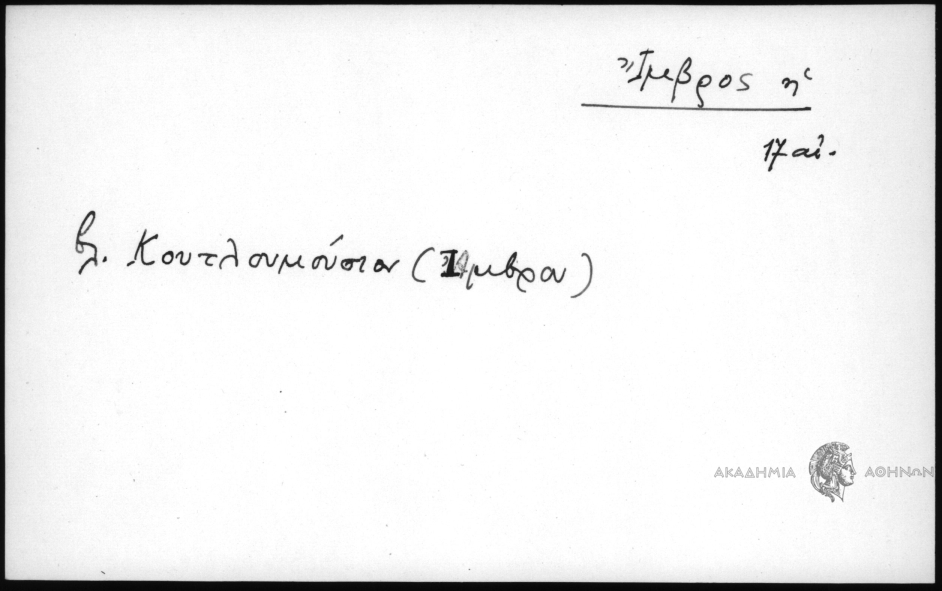 Ἴμβρος ἡ
17 αἰ.
βλ. Κουτλουμούσιον (Ἴμβρου)
ΑΚΑΔΗΜΙΑ ΑΘΗΝΩΝ